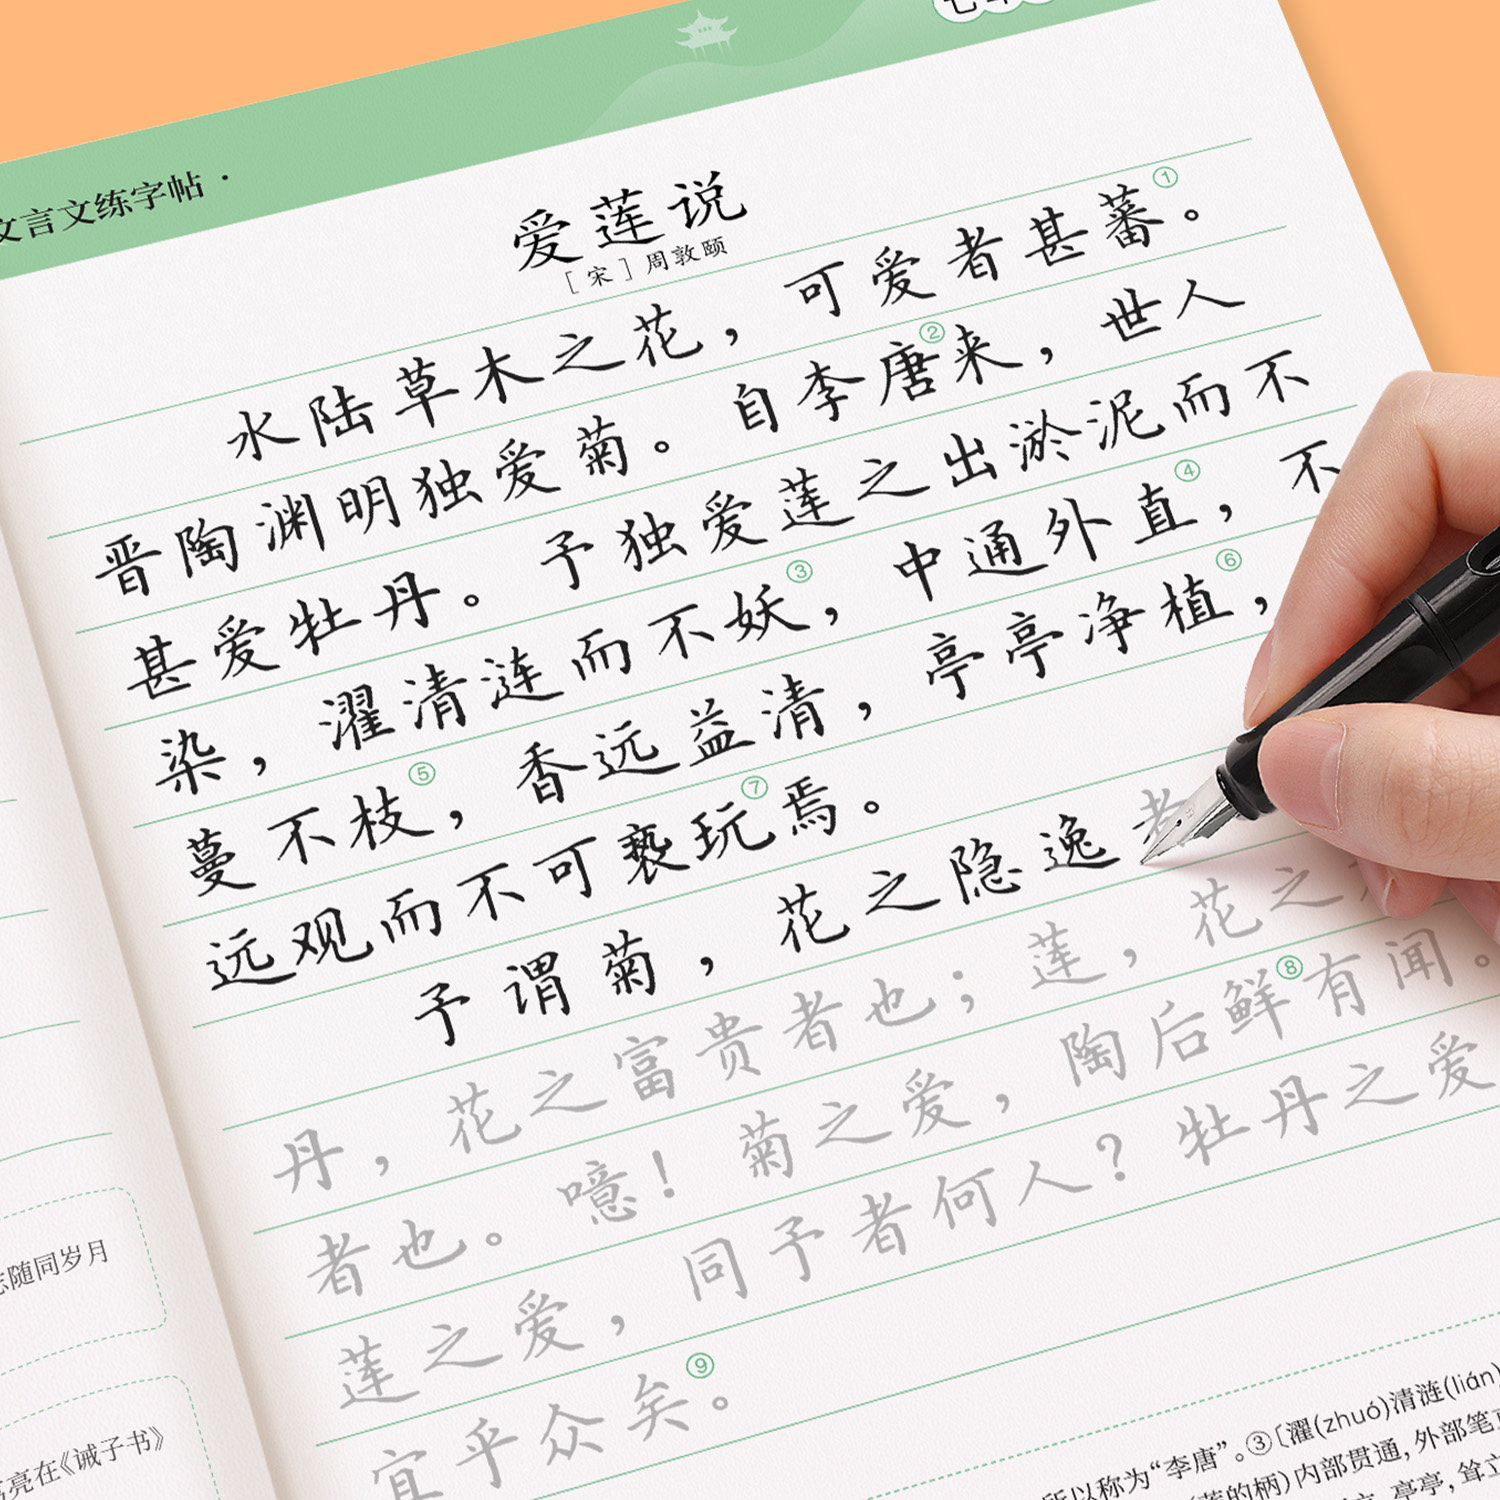 文言文练字帖·
爱莲说
[宋]周敦颐
水陆草木之花，可爱者甚蕃①。
晋陶渊明独爱菊。自李唐②来，世人
甚爱牡丹。予独爱莲之出淤泥而不
染，濯清涟而不妖③，中通外直④，不
蔓不枝⑤，香远益清，亭亭净植⑥，
远观而不可亵玩⑦焉。
予谓菊，花之隐逸者
丹，花之富贵者也；莲，花之
者也。噫！菊之爱，陶后鲜⑧有闻。
莲之爱，同予者何人？牡丹之爱
宜乎众矣⑨。
所以称为“李唐”。③〔濯(zhuó)清涟(lián)
的柄)内部贯通，外部笔
亭亭，耸立
志随同岁月
亮在《诫子书》